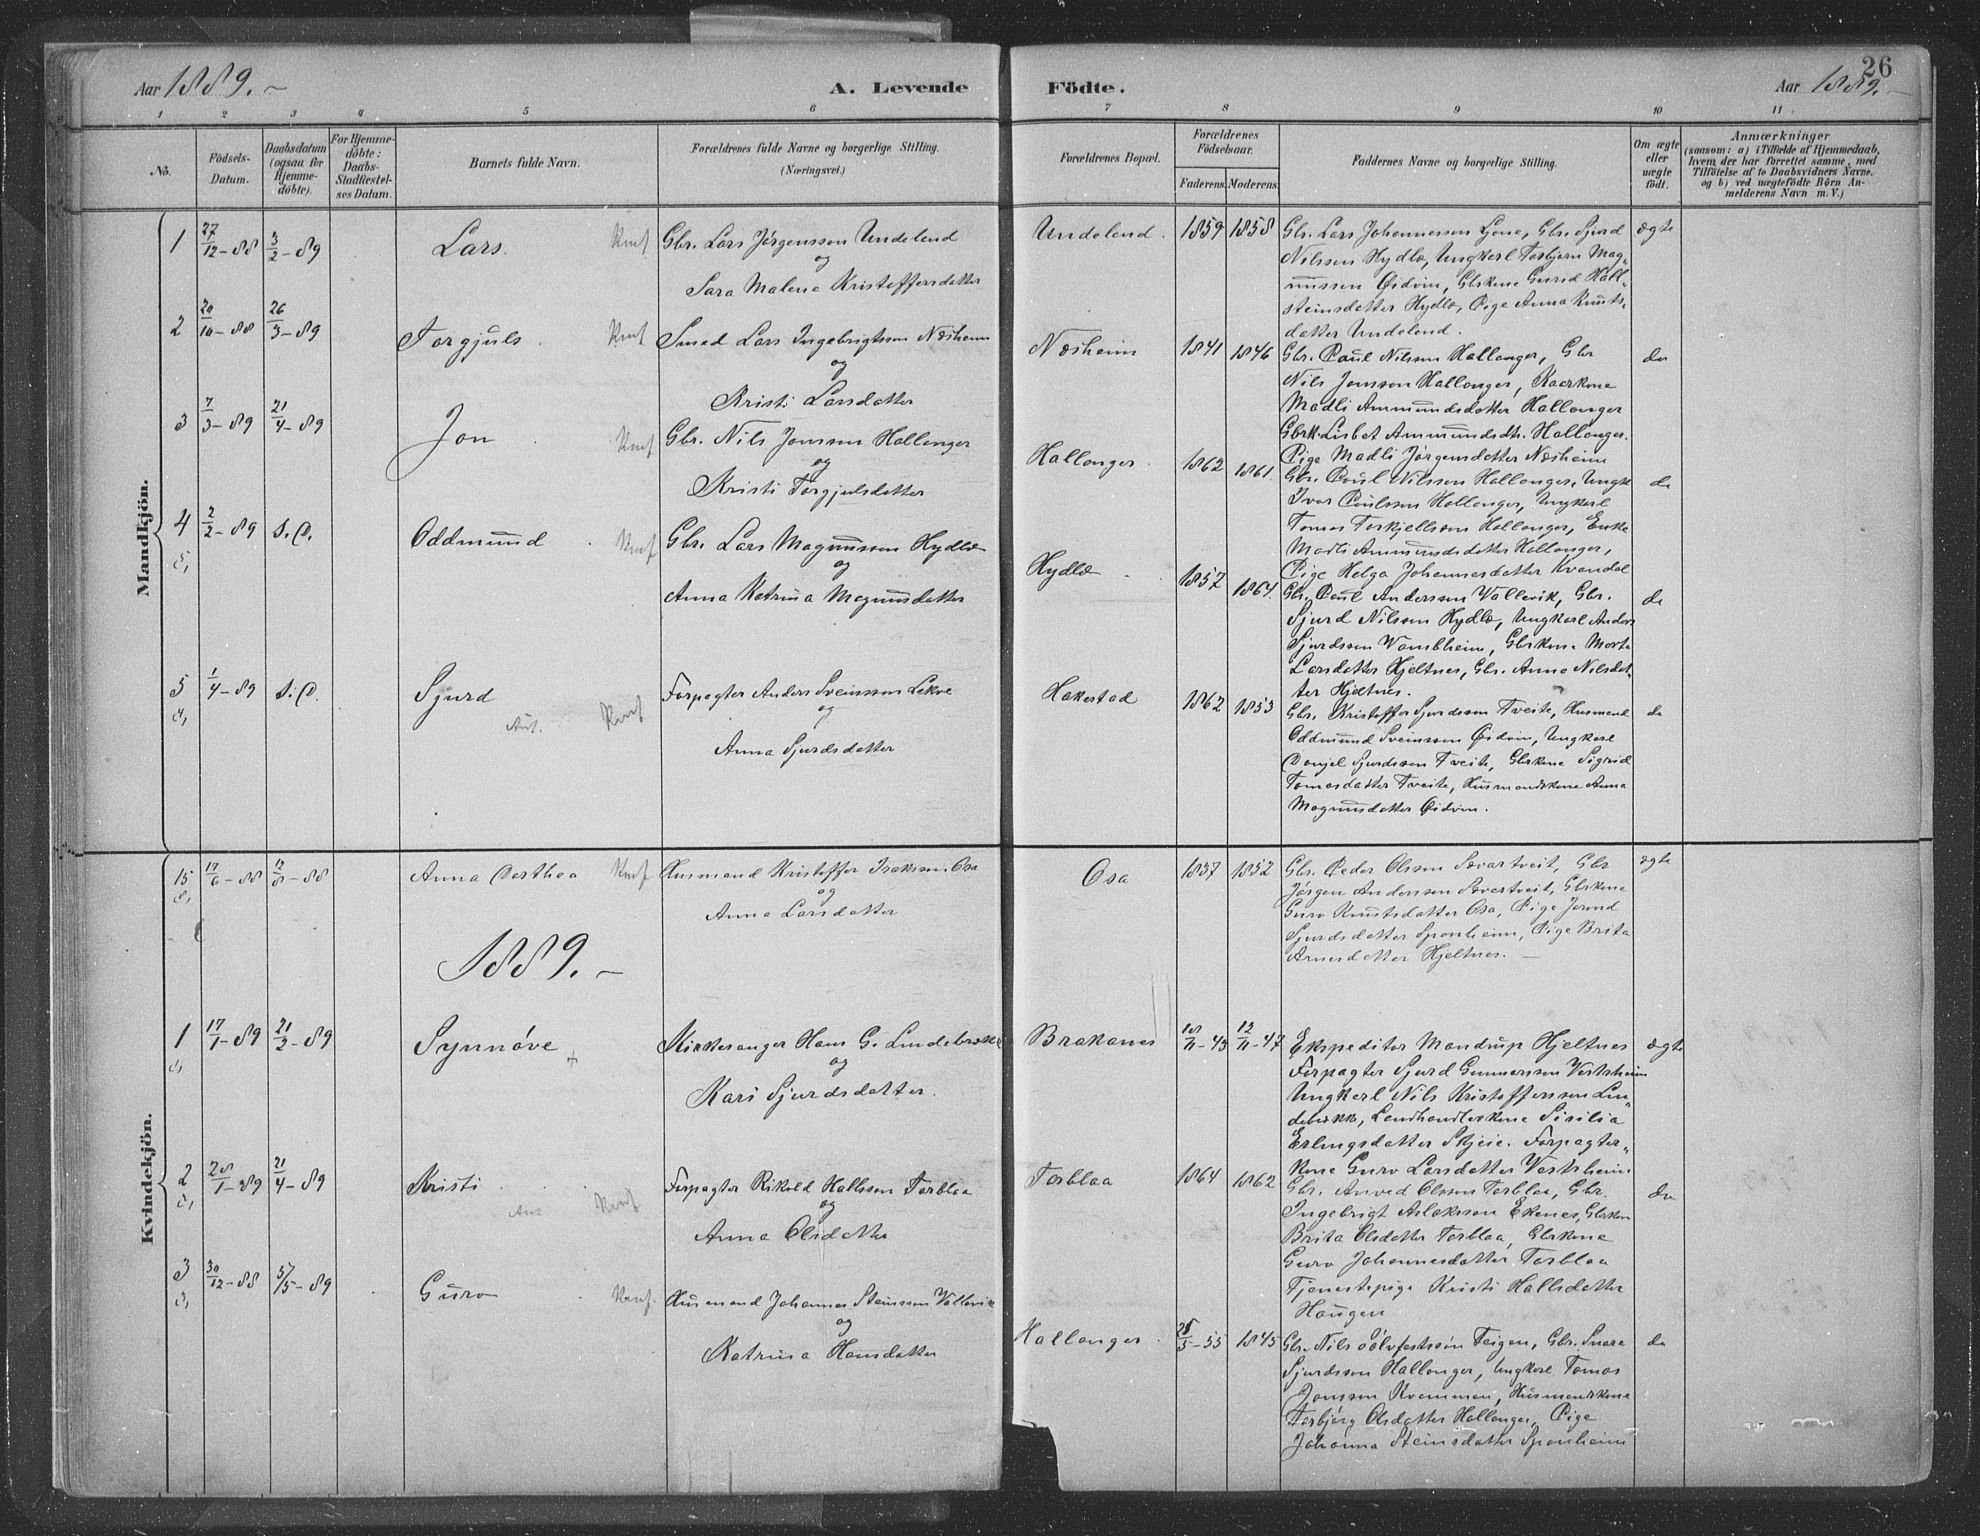 Aar 1889.
A. Levende
Födte.
Aar 1889.
26
1 2 3 4 5 6 7 8 9 10 11
No.
Födsels-
Datum.
Daabsdatum
(ogsaa for
Hjemme-
döbte).
For Hjemme-
döbte:
Daabs-
Stadfæstel-
ses Datum.
Barnets fulde Navn.
Forældrenes fulde Navne og borgerlige Stilling.
(Næringsvei.)
Forældrenes Bopæl.
Forældrenes
Födselsaar.
Faderens. Moderens.
Faddernes Navne og borgerlige Stilling.
Om ægte
eller
uægte
födt.
Anmærkninger
(saasom: a) i Tilfælde af Hjemmedaab,
hvem der har forrettet samme, med
Tilföielse af to Daabsvidners Navne.
og b) ved uægtefödte Börn An-
melderens Navn m. V.)
Mandkjön.
1 27/12-88 3/2-89 Lars. Knf Gbr. Lars Jörgensson Undeland
og
Sara Malena Kristoffersdatter
Undeland. 1859 1858 Gbr. Lars Johannesson Lione, Gbr. Sjurd ægte
Nilssen Hydle, Ungkarl Torbjørn Mag-
nussen Øidvin, Gbrkone Gurid Hall-
steinsdatter Hydle, Pige Anna Knuts-
datter Undeland.
2 20/10-88 26/3-89 Torgjuls Knf Smed Lars Ingebrigtsson Næsheim
og
Kristi Larsdatter
Næsheim 1841 1846 Gbr. Paul Nilsson Hallanger, Gbr do
Nils Jonsson Hallanger, Kaarkone
Madli Ammundsdatter Hallanger
Gbrk. Lisbet Ammundsdtr. Hallanger.
Pige Madli Jørgensdatter Næsheim
3 7/3-89 21/4-89 Jon Knf Gbr. Nils Jonsson Hallanger
og
Kristi Torgjulsdatter
Hallanger. 1862 1861. Gbr. Paul Nilsson Hallanger, Ungk do
Ivar Paulsson Hallanger, Ungkarl
Tomas Torkjellsson Hallanger, Enke
Madli Ammundsdatter Hallanger,
Pige Helga Johannesdatter Kvandal
4 2/2-89 S.D. Oddmund Knf Gbr. Lars Magnusson Hydle
og
Anna Katrina Magnusdatter
Hydle 1857 1864. Gbr. Paul Andersson Vallevik, Gbr. do
Sjurd Nilsson Hydle, Ungkarl Anders
Sjurdsson Vambheim, Gbrkone Marta
Larsdatter Hjeltnes, Gbr. Anna Nilsdat-
ter Hjeltnes.
5 1/4-89 S.D. Sjurd Aut. Knf Forpagter Anders Sveinsson Lekve
og
Anna Sjurdsdatter
Hakestad 1862 1853 Gbr. Kristoffer Sjurdsson Tveite, Husmand do
Oddmund Sveinsson Øidvin, Ungkarl
Danjel Sjurdsson Tveite, Gbrkone Sigrid
Tomasdatter Tveite, Husmandskone Anna
Magnusdatter Øidvin.
Kvindekjön.
15 17/6-88 12/8-88 Anna Dorthea Knf Husmand Kristoffer Isaksson Osa
og
Anna Larsdatter
Osa 1837 1852 Gbr. Peder Olsson Sævartveit, Gbr ægte
Jørgen Andersson Sævartveit, Gbrkone
Guro Knutsdatter Osa, Pige Jorund
Sjurdsdatter Sponheim, Pige Brita
Arnesdatter Hjeltnes.
1889.
1 17/1-89 21/2-89 Synnøve + Kirkesanger Hans G. Lindebrække
og
Kari Sjursdatter.
Brakanes 18/11-43 12/11-47 Ekspeditør Mandrup Hjeltnes ægte
Forpagter Sjurd Gunnarsson Vestrheim
Ungkarl Nils Kristoffersson Lin-
debrække, Landhandlerkone Sisilia
Erlingsdatter Skjeie. Forpagter-
kone Guro Larsdatter Vestrheim
2 28/1-89 21/4-89 Kristi Aut Knf Forpagter Rikold Hallsson Torblaa
og
Anna Olsdatter
Torblaa 1864 1862 Gbr. Anved Olsson Torblaa, Gbr. do
Ingebrigt Aslaksson Ekenes, Gbrkon
Brita Olsdatter Torblaa, Gbrkone
Guro Johannesdatter Torblaa
Tjenestepige Kristi Hallsdatter
Haugen
3 30/12-88 5/5-89 Guro Konf. Husmand Johannes Steinsson Vallevik
og
Katrina Hansdatter
Hallanger. 25/5-55 1845 Gbr. Nils Sölvfestssön Teigen, Gbr. Snara do
Sjurdsson Hallanger, Ungkarl Tomas
Jonsson Kvammen, Husmandskone
Torbjørg Olsdatter Hallanger, Pige
Johanna Steinsdatter Sponheim